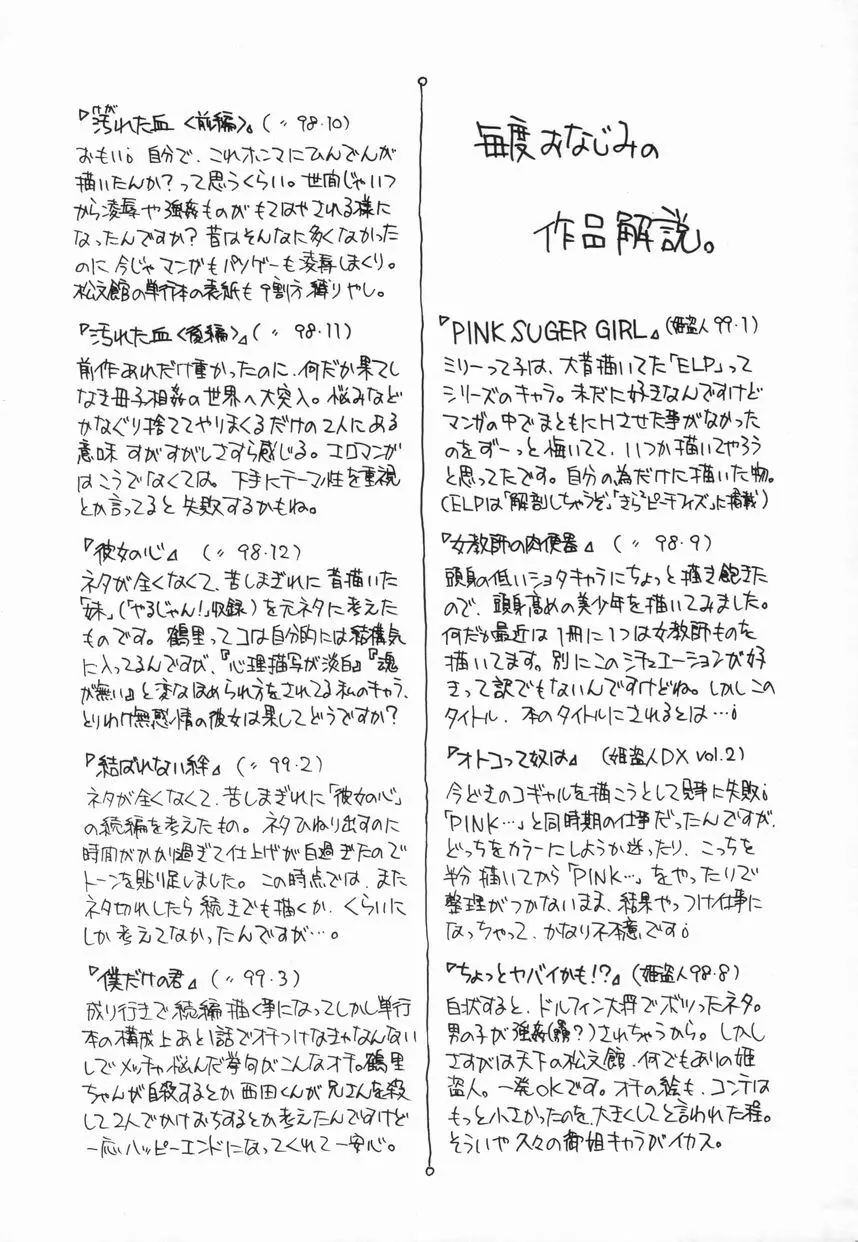 毎度おなじみの
作品解説。
『PINK SUGER GIRL』(姫盗人99・1)
ミリーって子は、大昔描いてた「ELP」って
シリーズのキャラ。未だに好きなんですけど
マンガの中でまともにHさせた事がなかった
のをずーっと悔いてて、いつか描いてやろう
と思ってたです。自分の為だけに描いた物。
(ELPは「解剖しちゃうぞ」「きらきらピーチフィズ」に掲載)
『女教師の肉便器』(〃 98・9)
頭身の低いショタキャラにちょっと描き飽きた
ので、頭身高めの美少年を描いてみました。
何だか最近は1冊に1つは女教師ものを
描いてます。別にこのシチュエーションが好
きって訳でもないんですけどね。しかしこの
タイトル、本のタイトルにされるとは…。
『オトコって奴は』(姫盗人DX vol.2)
今どきのコギャルを描こうとして見事に失敗。
「PINK…」と同時期の仕事だったんですが、
どっちをカラーにしようか迷ったり、こっちを
半分描いてから「PINK…」をやったりで
整理がつかないまま、結果やっつけ仕事に
なっちゃって、かなり不本意です。
『ちょっとヤバイかも!?』(姫盗人98・8)
白状すると、ドルフィン大将でボツったネタ。
男の子が強姦(?)されちゃうから。しかし
さすがは天下の松文館、何でもありの姫
盗人。一発OKです。オチの絵も、コンテは
もっと小さかったのを、大きくしてと言われた程。
そういや久々の御姐キャラがイカス。
『汚れた血〈前編〉』(〃 98・10)
おもい。自分で、これホンマにひんでんが
描いたんか?って思うくらい。世間じゃいつ
から凌辱や強姦ものがもてはやされる様に
なったんですか?昔はそんなに多くなかった
のに今じゃマンガもパソゲーも凌辱しまくり。
松文館の単行本の表紙も9割方縛りやし。
『汚れた血〈後編〉』(〃 98・11)
前作あれだけ重かったのに、何だか果てし
なき母子相姦の世界へ大突入。悩みなど
かなぐり捨ててやりまくるだけの2人にある
意味すがすがしさすら感じる。エロマンガ
はこうでなくては。下手にテーマ性を重視
とか言ってると失敗するかもね。
『彼女の心』(〃 98・12)
ネタが全くなくて、苦しまぎれに昔描いた
「妹」(「やるじゃん!」収録)を元ネタに考えた
ものです。鶴里ってコは自分的には結構気
に入ってるんですが、『心理描写が淡白』『魂
が無い』と変なほめられ方をされてる私のキャラ、
とりわけ無感情の彼女は果してどうですか?
『結ばれない絆』(〃 99・2)
ネタが全くなくて、苦しまぎれに「彼女の心」
の続編を考えたもの。ネタひねり出すのに
時間がかかり過ぎて仕上げが白過ぎたので
トーンを貼り足しました。この時点では、また
ネタ切れしたら続きでも描くか、くらいに
しか考えてなかったんですが…。
『僕だけの君』(〃 99・3)
成り行きで続編描く事になってしかし単行
本の構成上あと1話でオチつけなきゃなんない
しでメッチャ悩んだ挙句がこんなオチ。鶴里
ちゃんが自殺するとか西田くんが兄さんを殺
して2人でかけおちするとか考えたんですけど
一応ハッピーエンドになってくれて一安心。